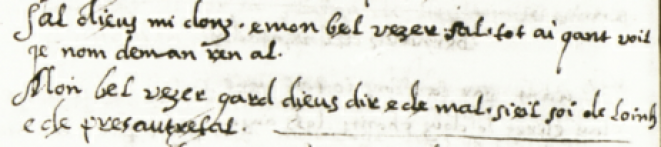 Sal dieus mi donz · e mon bel vezer · sal · tot ai qant voil
qe nom deman ren al ·
Mon bel vezer gard dieus dir e de mal · si eil soi de loinh
e de pres autretal ·